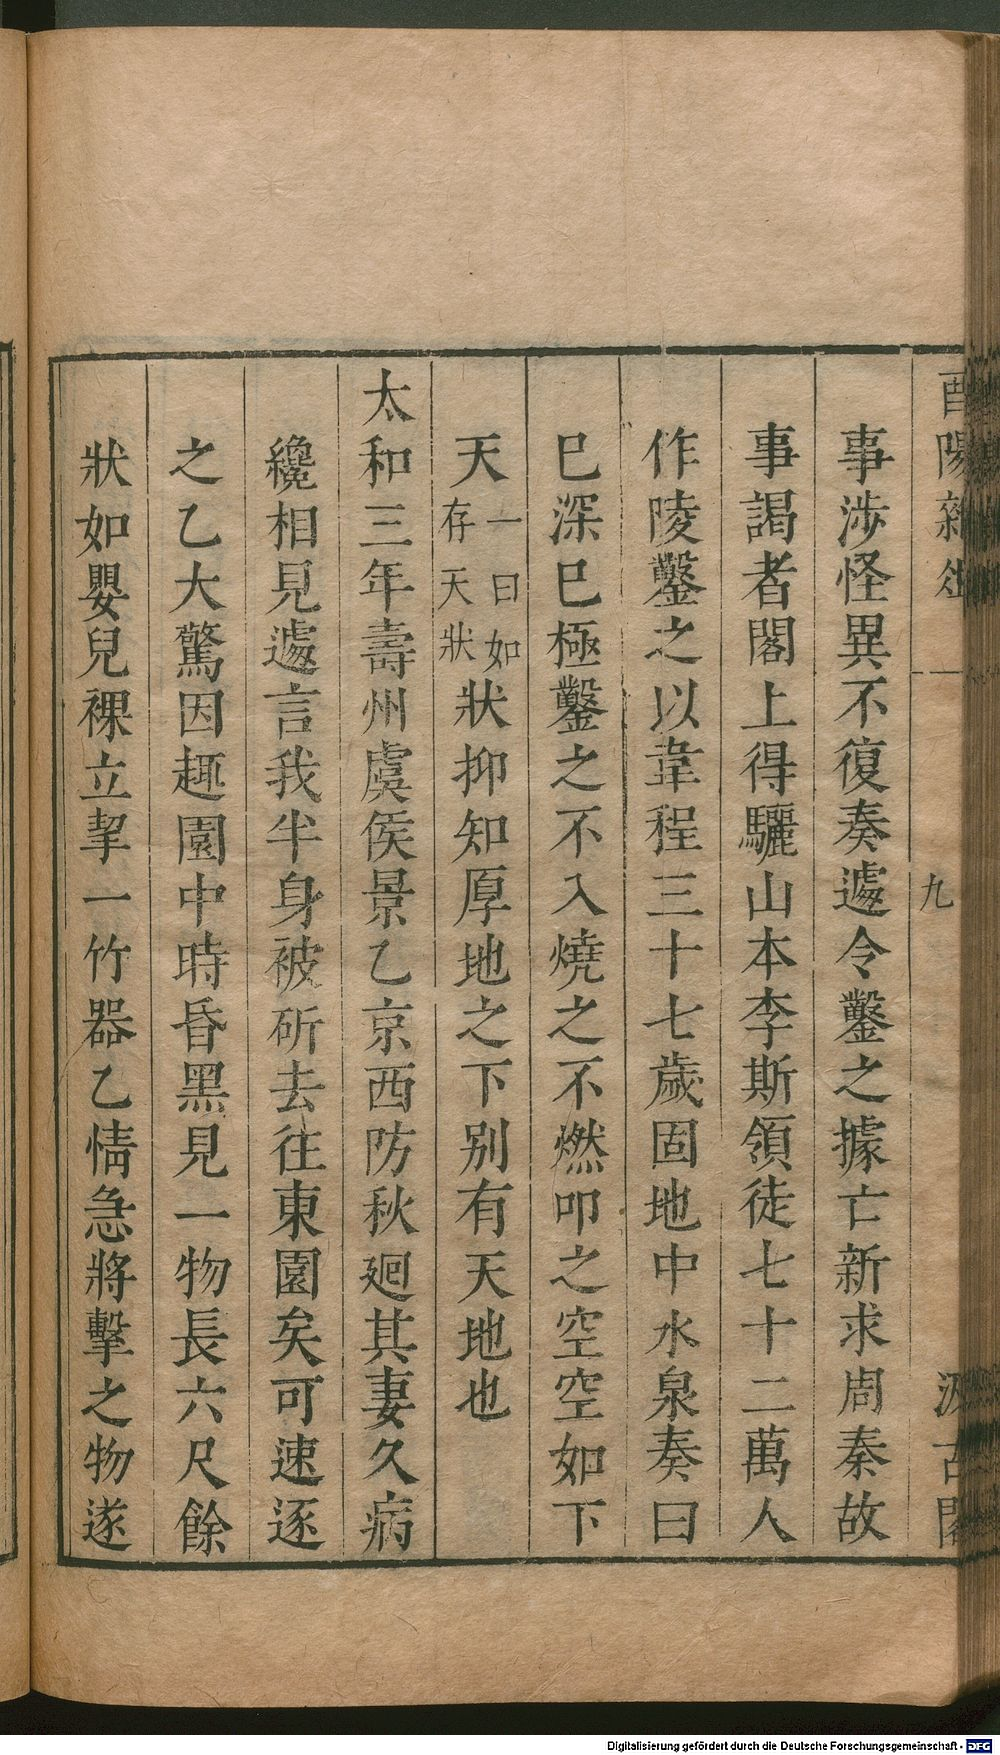 酉陽雜俎
九
汲古閣
事涉怪異不復奏遽令鑿之據亡新求周秦故
事謁者閣上得驪山本李斯領徒七十二萬人
作陵鑿之以韋程三十七歲固地中水泉奏曰
已深已極鑿之不入燒之不燃叩之空空如下
天一曰如存天狀狀抑知厚地之下別有天地也
太和三年壽州虞侯景乙京西防秋廻其妻久病
纔相見遽言我半身被斫去往東園矣可速逐
之乙大驚因趣園中時昏黑見一物長六尺餘
狀如嬰兒裸立挈一竹器乙情急將擊之物遂
Digitalisierung gefördert durch die Deutsche Forschungsgemeinschaft - DFG